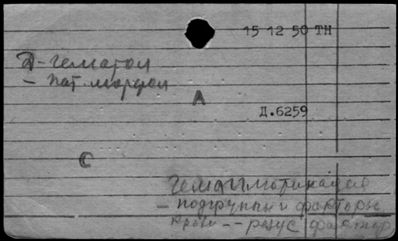 15 12 50 ТН
Д-гематол
- пат. морфол
А
Д.6259
С
гемагглютинация
- подгруппы и факторы
крови -- резус фактор